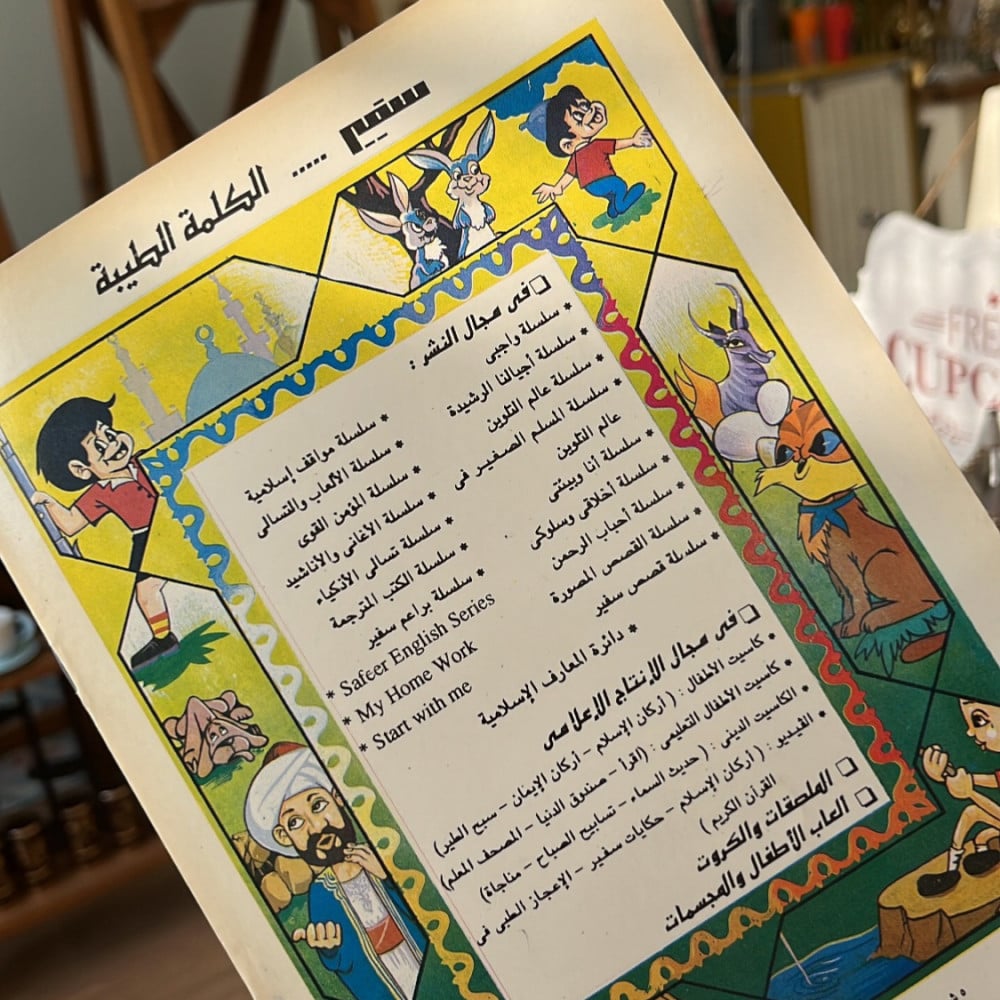 سفير ..... الكلمة الطيبة
❑ فى مجال النشر :
* سلسلة واجبى
* سلسلة أجيالنا الرشيدة
* سلسلة عالم التلوين
* سلسلة المسلم الصغير فى
عالم التلوين
* سلسلة أنا وبيئتى
* سلسلة أخلاقى وسلوكى
* سلسلة أحباب الرحمن
* سلسلة القصص المصورة
* سلسلة قصص سفير
* سلسلة مواقف إسلامية
* سلسلة الألعاب والتسالى
* سلسلة المؤمن القوى
* سلسلة الأغانى والأناشيد
* سلسلة تسالى الأذكياء
* سلسلة الكتب المترجمة
* سلسلة براعم سفير
* Safeer English Series
* My Home Work
* Start with me
* دائرة المعارف الإسلامية
❑ فى مجال الإنتاج الإعلامى
* كاسيت الأطفال : ( أركان الإسلام - أركان الإيمان - سبح الطير)
* كاسيت الأطفال التعليمى : (اقرأ - صندوق الدنيا - المصحف المعلم)
* الكاسيت الدينى : (حديث السماء - تسابيح الصباح - مناجاة)
* الفيديو : ( أركان الإسلام - حكايات سفير - الإعجاز الطبى فى
القرآن الكريم )
❑ الملصقات والكروت
❑ ألعاب الأطفال والمجسمات
FRE
CUPC